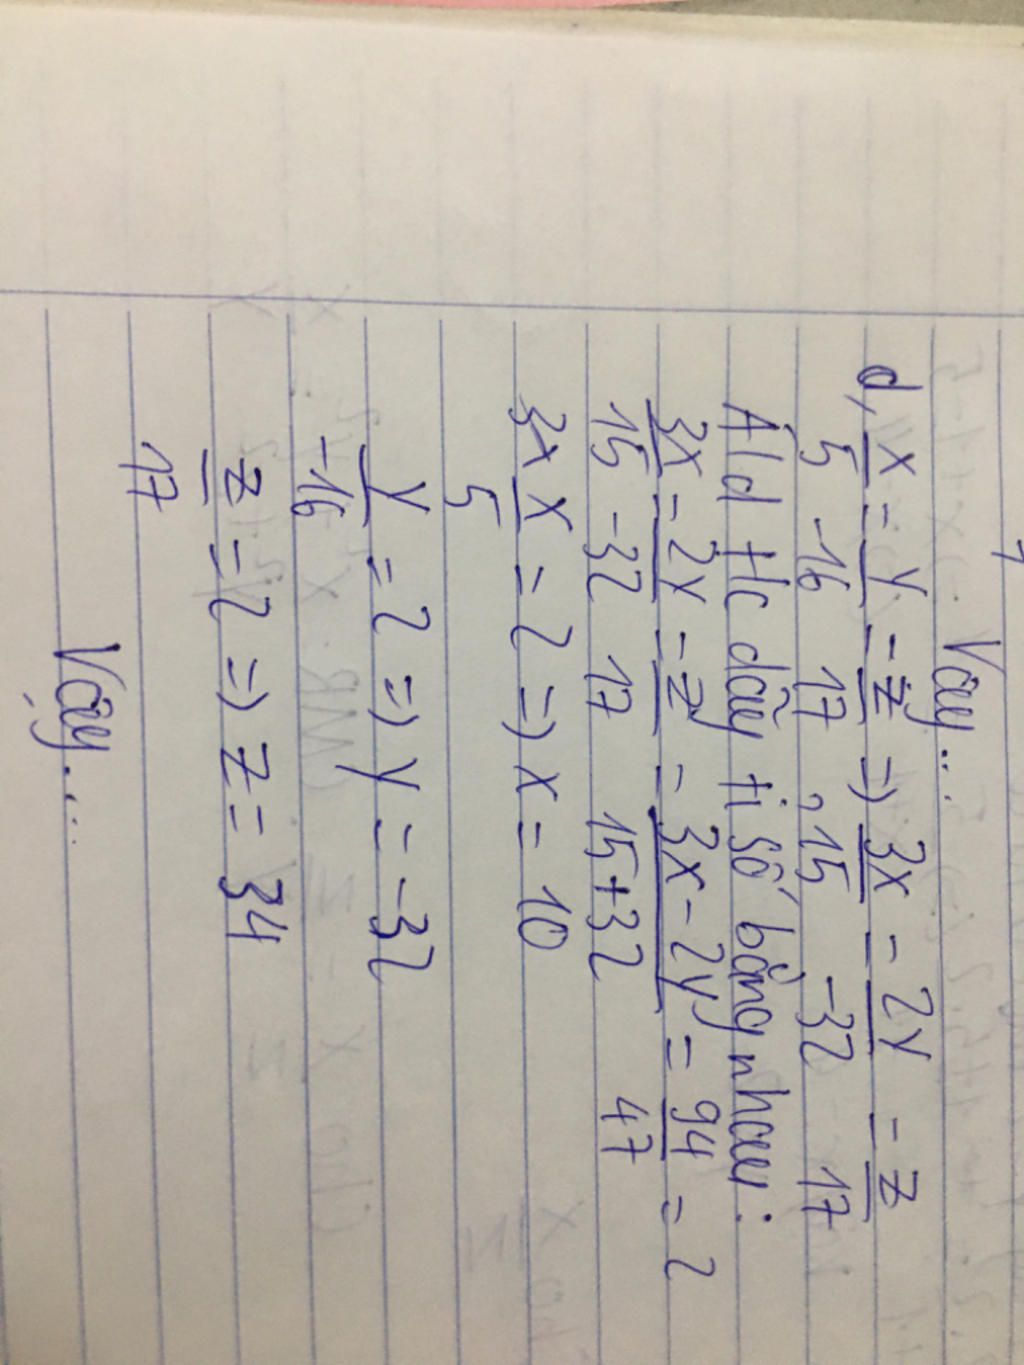 Vậy...
d, x/5 = y/-16 = z/17 => 3x/15 = 2y/-32 = z/17
Áld t/c dãy tỉ số bằng nhau:
3x/15 = 2y/-32 = z/17 = 3x-2y/15+32 = 94/47 = 2
x/5 = 2 => x = 10
y/-16 = 2 => y = -32
z/17 = 2 => z = 34
Vậy....